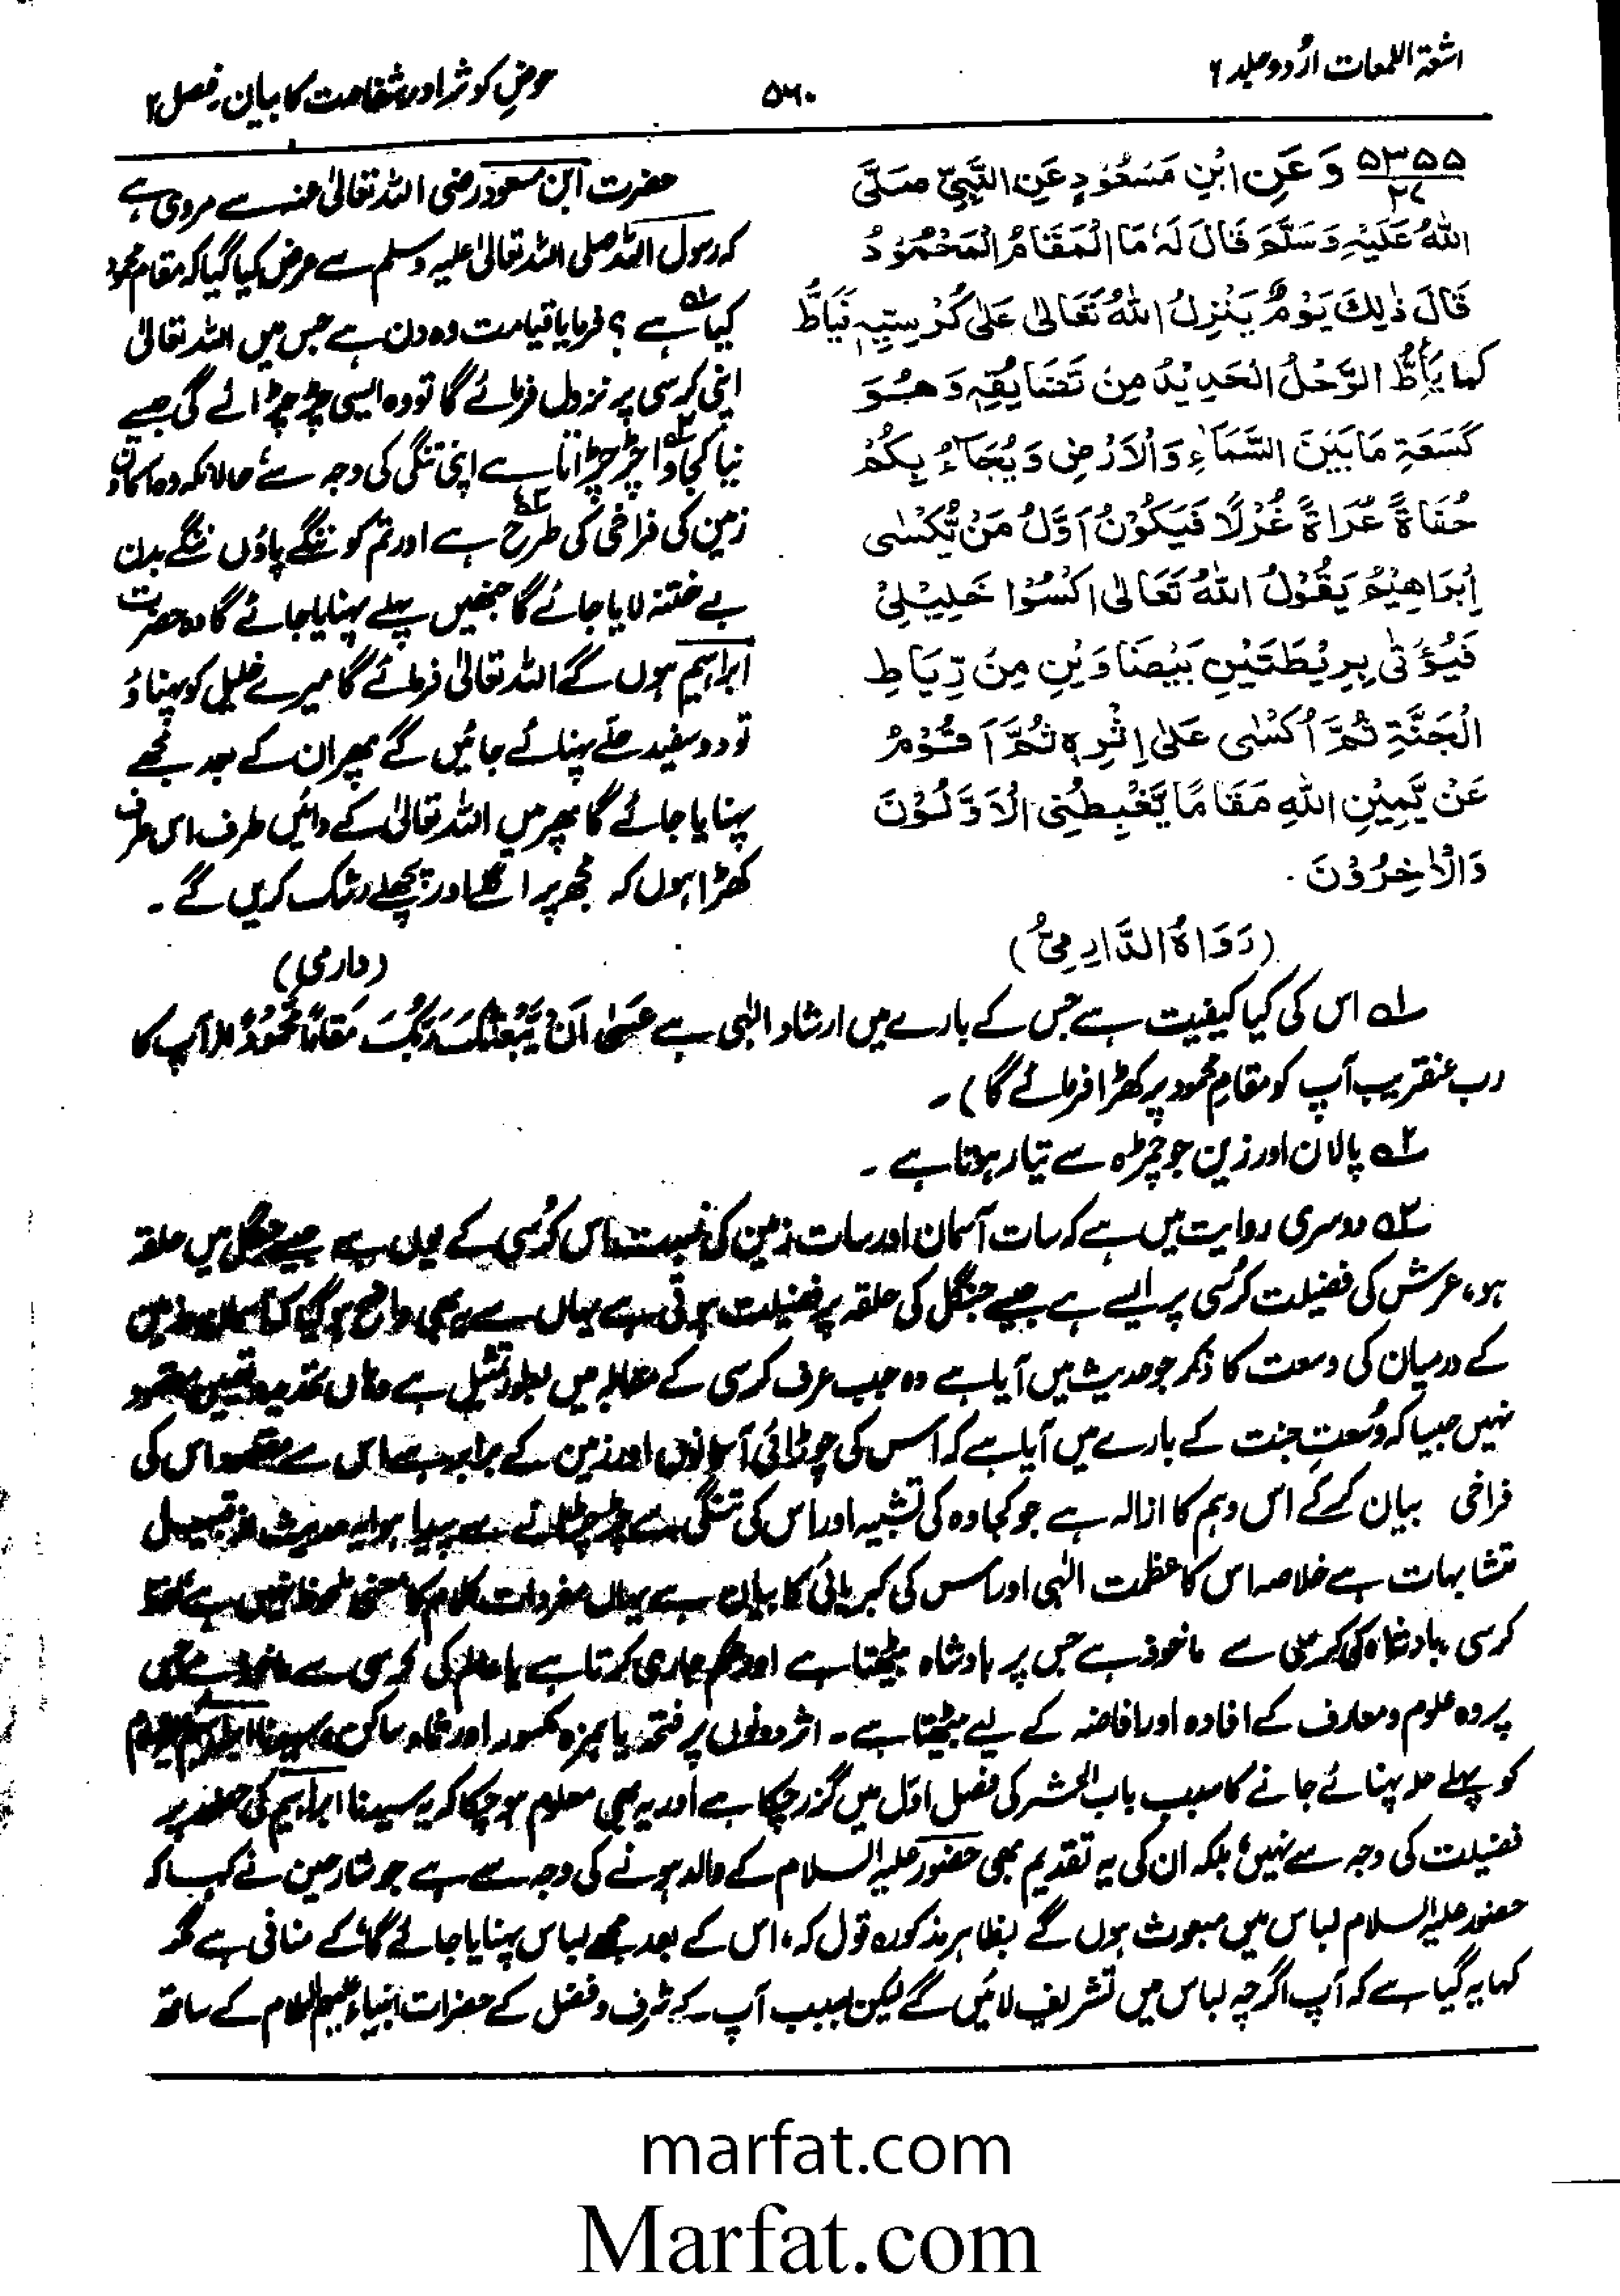 اشعۃ اللمعات اردو جلد ۶
۵۶۰
حوضِ کوثر اور شفاعت کا بیان۔ فصل ۲
۵۳۵۵ وَ عَنِ ابْنِ مَسْعُوْدٍ عَنِ النَّبِيِّ صَلَّى
۲۷
اللّٰهُ عَلَيْهِ وَسَلَّمَ قَالَ قَالَ لَهٗ مَا الْمَقَامُ الْمَحْمُوْدُ
قَالَ ذٰلِكَ يَوْمٌ يَنْزِلُ اللّٰهُ تَعَالٰى عَلٰى كُرْسِيِّهٖ فَيَاَطُّ
كَمَا يَاَطُّ الرَّحْلُ الْحَدِيْدُ مِنْ تَضَايُقِهٖ وَهُوَ
كَسَعَةِ مَا بَيْنَ السَّمَآءِ وَالْاَرْضِ وَيُجَآءُ بِكُمْ
حُفَاةً عُرَاةً غُرْلًا فَيَكُوْنُ اَوَّلُ مَنْ يُّكْسٰى
اِبْرَاهِيْمُ يَقُوْلُ اللّٰهُ تَعَالٰى اكْسُوْا خَلِيْلِيْ
فَيُؤْتٰى بِرِيْطَتَيْنِ بَيْضَاوَيْنِ مِنْ رِّيَاطِ
الْجَنَّةِ ثُمَّ اُكْسٰى عَلٰى اِثْرِهٖ ثُمَّ اَقُوْمُ
عَنْ يَّمِيْنِ اللّٰهِ مَقَامًا يَّغْبِطُنِى الْاَوَّلُوْنَ
وَالْاٰخِرُوْنَ ۔
(رَوَاهُ الدَّارِمِيُّ)
حضرت ابن مسعود رضی اللہ تعالیٰ عنہ سے مروی ہے
کہ رسول اللہ صلی اللہ تعالیٰ علیہ وسلم سے عرض کیا گیا کہ مقام محمود
کیا ہے ؟ فرمایا قیامت وہ دن ہے جس میں اللہ تعالیٰ
اپنی کرسی پر نزول فرمائے گا تو وہ ایسی چڑچڑائے گی جیسے
نیا کجاوا چڑچڑاتا ہے اپنی تنگی کی وجہ سے، حالانکہ وہ آسمان و
زمین کی فراخی کی طرح ہے اور تم کو ننگے پاؤں ننگے بدن
بے ختنہ لایا جائے گا جنھیں پہلے پہنایا جائے گا وہ حضرت
ابراہیم ہوں گے اللہ تعالیٰ فرمائے گا میرے خلیل کو پہناؤ
تو دو سفید حلے پہنائے جائیں گے پھر ان کے بعد مجھے
پہنایا جائے گا پھر میں اللہ تعالیٰ کے دائیں طرف اس طرف
کھڑا ہوں کہ مجھ پر اگلے اور پچھلے رشک کریں گے ۔
(دارمی)
۱ اس کی کیا کیفیت ہے جس کے بارے میں ارشاد الٰہی ہے عَسٰى اَنْ يَّبْعَثَكَ رَبُّكَ مَقَامًا مَّحْمُوْدًا (آپ کا
رب عنقریب آپ کو مقامِ محمود پر کھڑا فرمائے گا) ۔
۲ پالان اور زین جو چمڑہ سے تیار ہوتا ہے ۔
۳ دوسری روایت میں ہے کہ سات آسمان اور سات زمین کی نسبت اس کرسی کے یوں ہے جیسے جنگل میں حلقہ
ہو، عرش کی فضیلت کرسی پر ایسے ہے جیسے جنگل کی حلقہ پر فضیلت ہوتی ہے یہاں سے یہ بھی واضح ہو گیا کہ آسمان و زمین
کے درمیان کی وسعت کا ذکر جو حدیث میں آیا ہے وہ حسب عرف کرسی کے مقابلہ میں بطور تمثیل ہے وہاں تحدید و تعیین مقصود
نہیں جیسا کہ وُسعتِ جنت کے بارے میں آیا ہے کہ اس کی چوڑائی آسمانوں اور زمین کے برابر ہے اس سے مقصود اس کی
فراخی بیان کر کے اس وہم کا ازالہ ہے جو کجاوہ کی تشبیہ اور اس کی تنگی سے چڑچڑانے سے پیدا ہوا یہ حدیث از قبیل
متشابہات ہے خلاصہ اس کا عظمت الٰہی اور اس کی کبریائی کا بیان ہے یہاں مفردات کلام کا معنی ملحوظ نہیں ہے لفظ
کرسی بادشاہ کی کرسی سے ماخوذ ہے جس پر بادشاہ بیٹھتا ہے اور حکم جاری کرتا ہے یا عالم کی کرسی سے ماخوذ ہے جس
پر وہ علوم و معارف کے افادہ اور افاضہ کے لیے بیٹھتا ہے ۔ اثر دونوں پر فتحہ یا ہمزہ مکسور اور ثاء ساکن، سیدنا ابراہیم علیہ السلام
کو پہلے حلہ پہنائے جانے کا سبب باب الحشر کی فصل اوّل میں گزر چکا ہے اور یہ بھی معلوم ہو چکا کہ یہ سیدنا ابراہیم کی حضور پر
فضیلت کی وجہ سے نہیں بلکہ ان کی یہ تقدیم بھی حضور علیہ السلام کے والد ہونے کی وجہ سے ہے جو شارحین نے کہا کہ
حضور علیہ السلام لباس میں مبعوث ہوں گے بظاہر مذکورہ قول کہ، اس کے بعد مجھے لباس پہنایا جائے گا، کے منافی ہے مگر
کہا یہ گیا ہے کہ آپ اگرچہ لباس میں تشریف لائیں گے لیکن بسبب آپ کے شرف و فضل کے حضرات انبیاء علیہم السلام کے ساتھ
marfat.com
Marfat.com